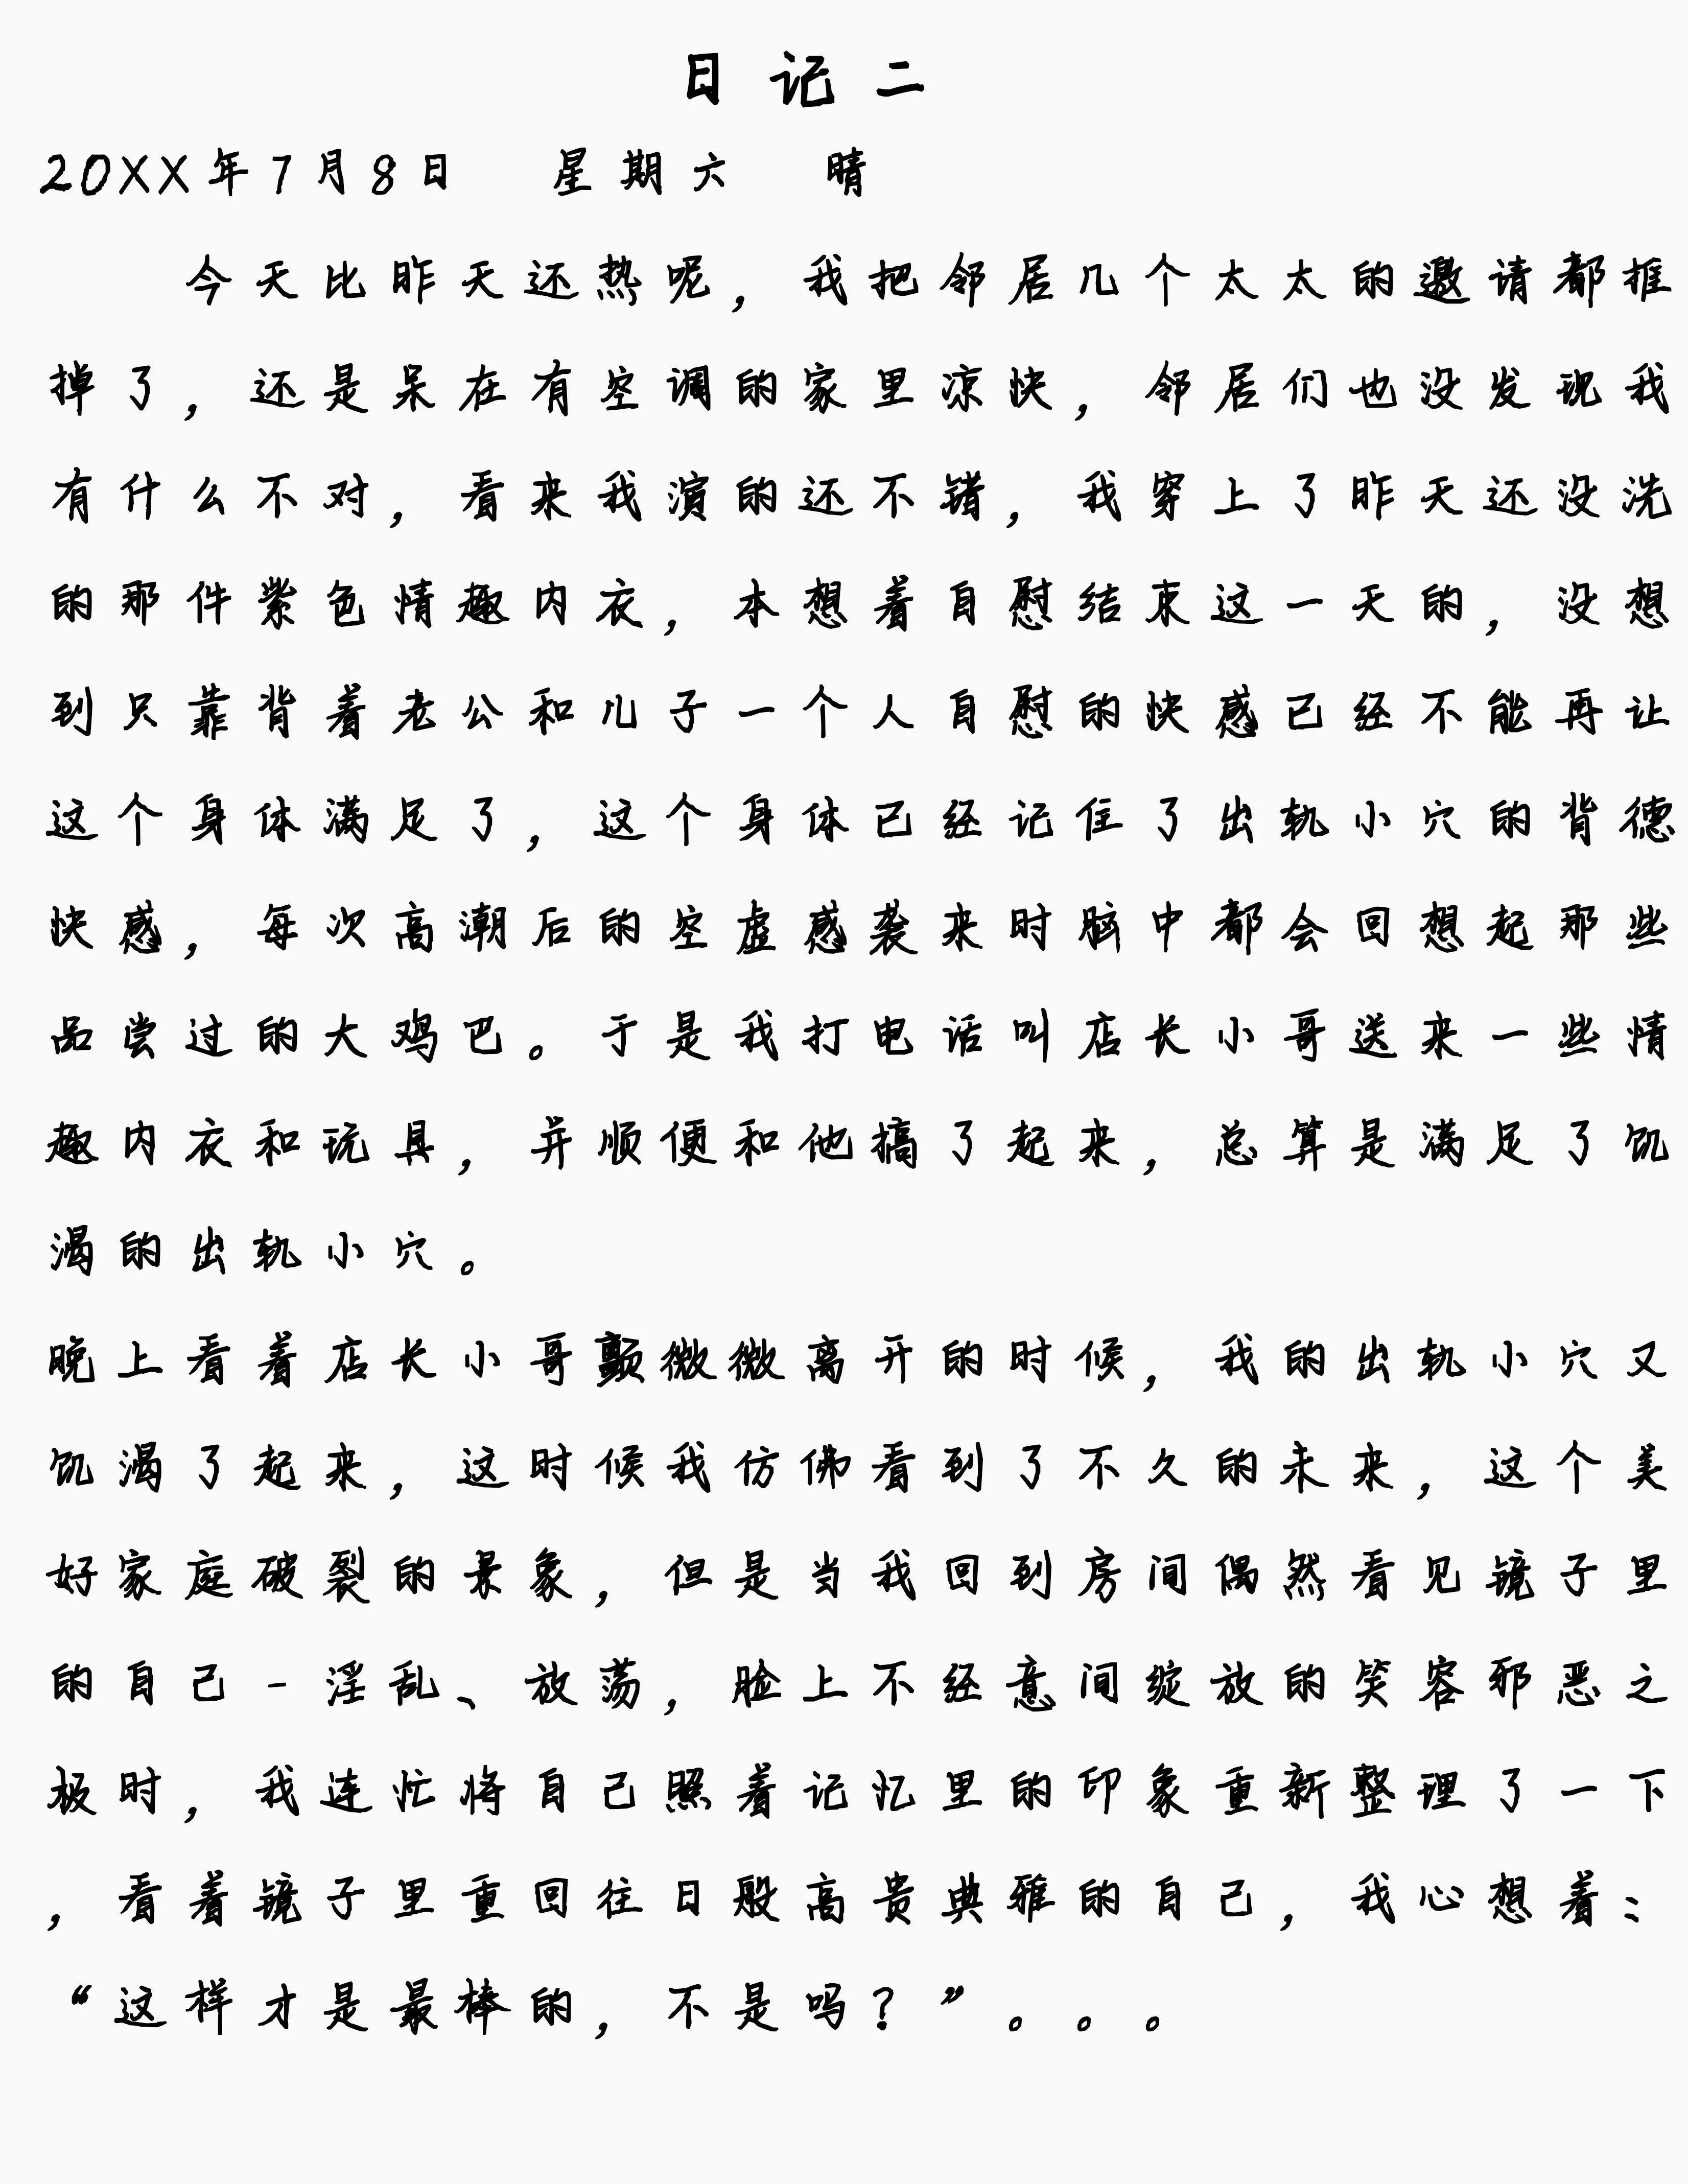 日记二
20XX年7月8日 星期六 晴
今天比昨天还热呢，我把邻居几个太太的邀请都推
掉了，还是呆在有空调的家里凉快，邻居们也没发现我
有什么不对，看来我演的还不错，我穿上了昨天还没洗
的那件紫色情趣内衣，本想着自慰结束这一天的，没想
到只靠背着老公和儿子一个人自慰的快感已经不能再让
这个身体满足了，这个身体已经记住了出轨小穴的背德
快感，每次高潮后的空虚感袭来时脑中都会回想起那些
品尝过的大鸡巴。于是我打电话叫店长小哥送来一些情
趣内衣和玩具，并顺便和他搞了起来，总算是满足了饥
渴的出轨小穴。
晚上看着店长小哥颤微微离开的时候，我的出轨小穴又
饥渴了起来，这时候我仿佛看到了不久的未来，这个美
好家庭破裂的景象，但是当我回到房间偶然看见镜子里
的自己-淫乱、放荡，脸上不经意间绽放的笑容邪恶之
极时，我连忙将自己照着记忆里的印象重新整理了一下
，看着镜子里重回往日般高贵典雅的自己，我心想着：
“这样才是最棒的，不是吗？”。。。